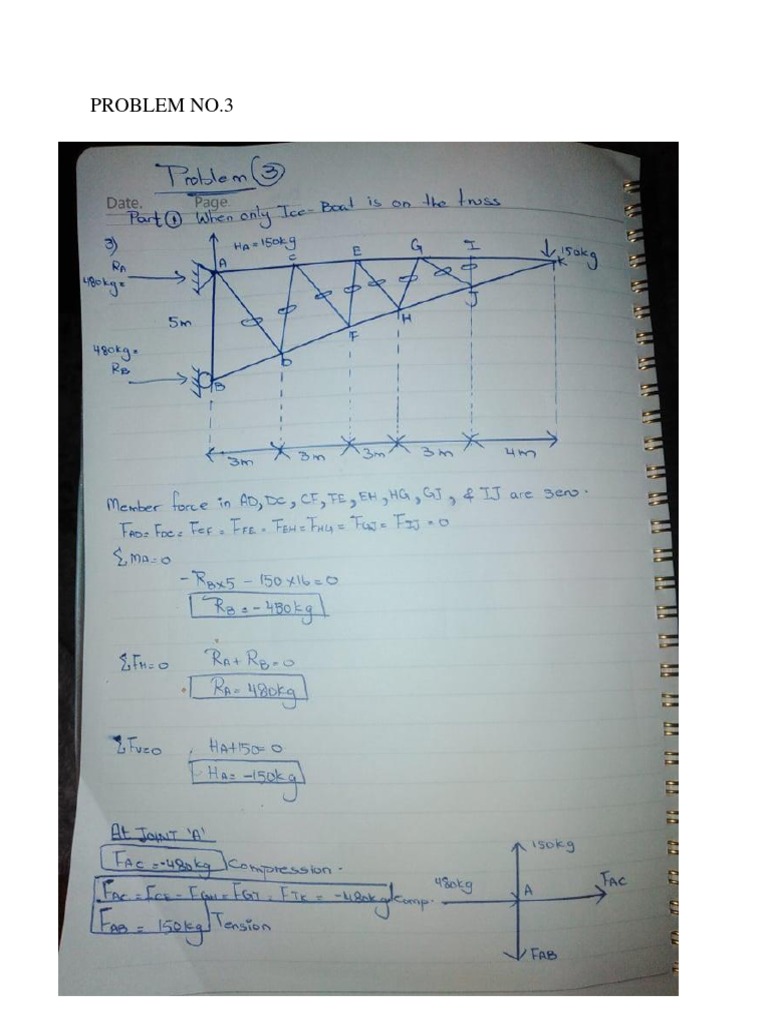 PROBLEM NO.3
Problem (3)
Date. Page
Part ① When only Ice-Boat is on the truss
3)
HA=150kg
RA
480kg=
A C E G I
150kg
K
5m
480kg=
RB
B D F H J
3m 3m 3m 3m 4m
Member force in AD, DC, CF, FE, EH, HG, GJ, & IJ are sero.
FAD= FDC= FCF = FFE = FEH= FHG = FGJ= FIJ=0
ΣMA=0
-RB×5 - 150×16=0
RB=-480kg
ΣFH=0 RA+RB=0
RA=480kg
ΣFV=0 HA+150=0
HA= -150kg
At JOINT 'A'
FAC=-480kg Compression.
FAC = FCE = FGI = FIK = -480kg Comp.
FAB = 150kg Tension
150kg
480kg
A
FAC
FAB